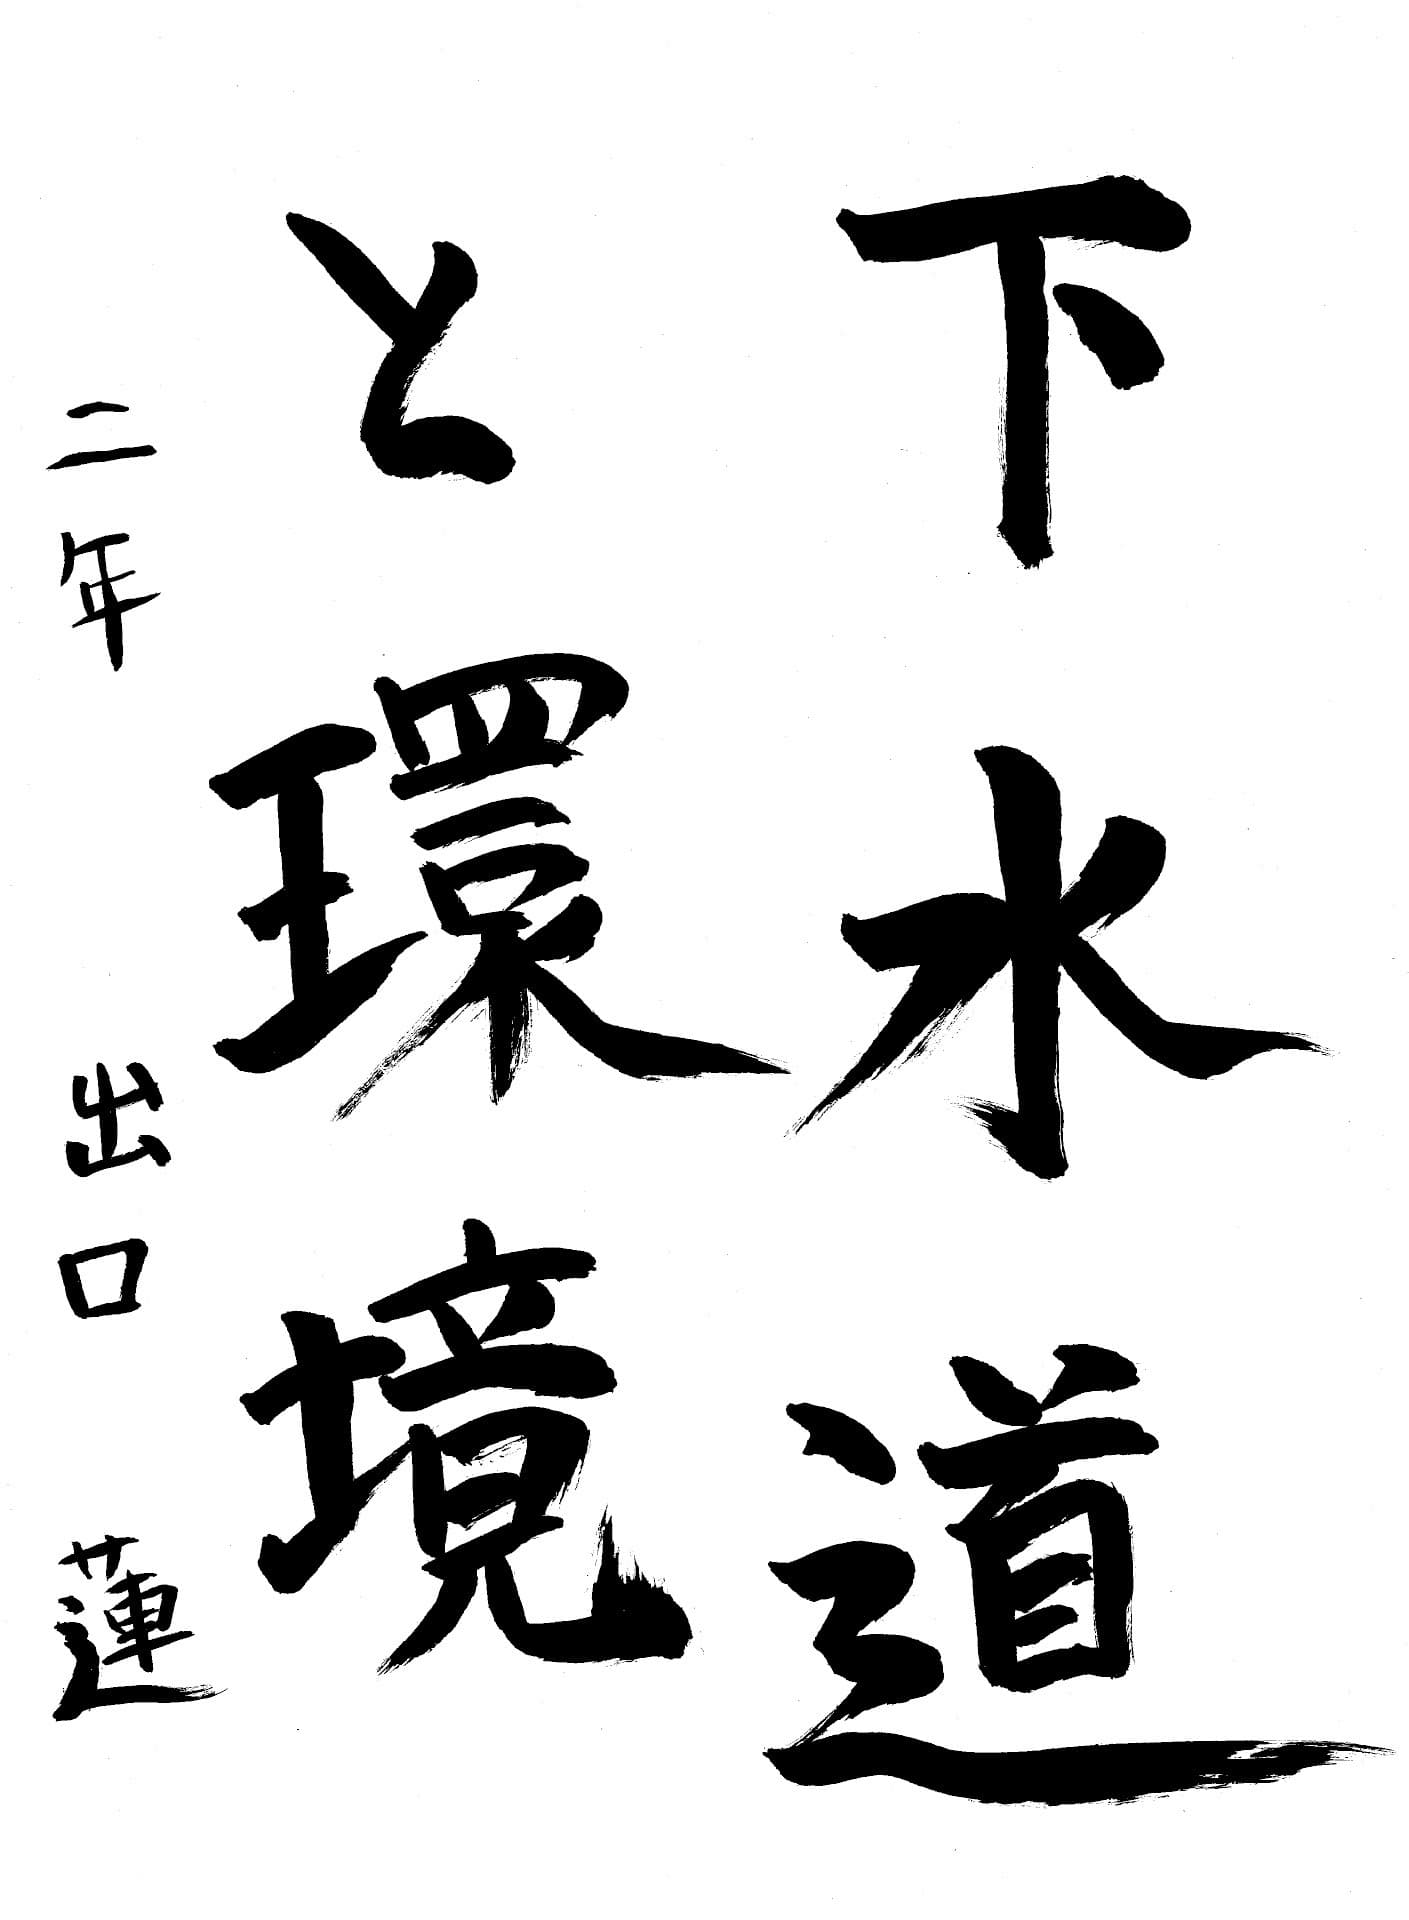 下水道
と環境
二年 出口 蓮